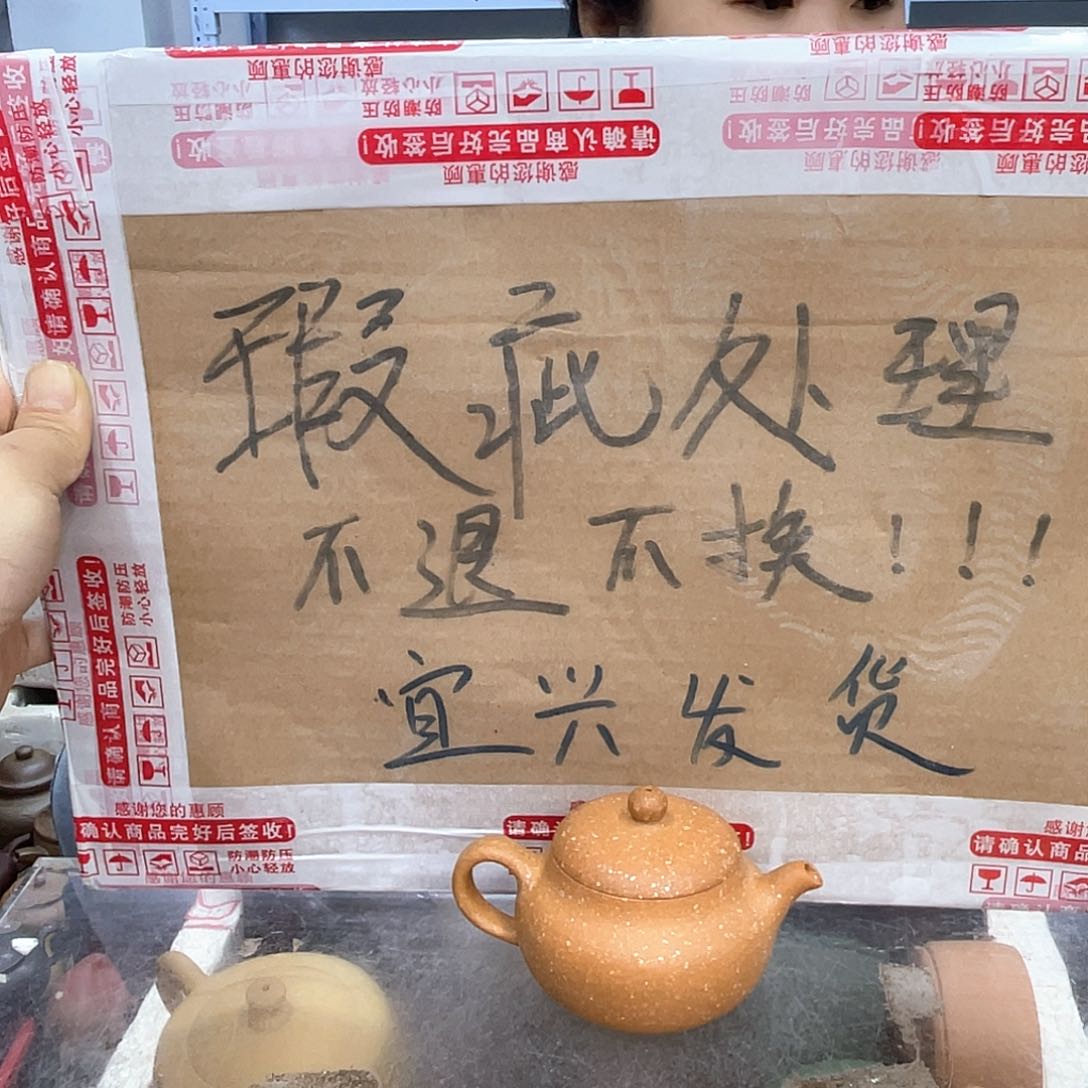 瑕疵处理
不退不换!!!
宜兴发货
感谢您的惠顾
小心轻放
防潮防压
请确认商品完好后签收!
感谢您的惠顾
感谢您的惠顾
请确认商品完好后签收!
防潮防压
小心轻放
感谢您的惠顾
确认商品完好后签收!
防潮防压
小心轻放
请确
感谢
请确认商品